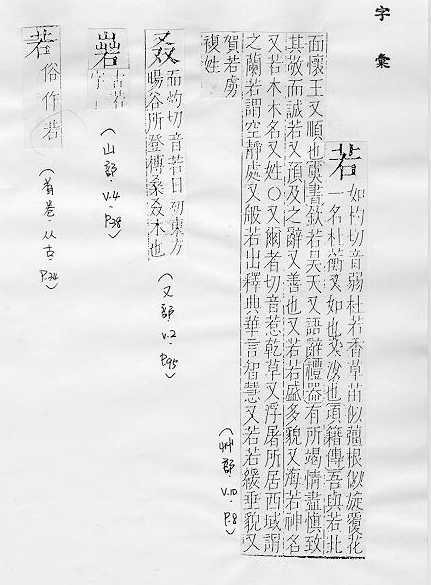 字彙
若 如灼切音弱杜若香草苗似薑根似旋覆花
一名杜蘅又如也又汝也項籍傳吾與若北
面懷王又順也虞書欽若昊天又語辭禮器有所竭情盡慎致
其敬而誠若又預及之辭又善也又若若盛多貌又海若神名
又若木木名又姓○又爾者切音惹乾草又浮屠所居西域謂
之蘭若謂空靜處又般若出釋典華言智慧又若若緩垂貌又
賀若虜
複姓
(艸部 V.10. P.8)
叒 而灼切音若日初東方
暘谷所登榑桑叒木也
(又部 V.2. P.95)
古若
字
(山部 V.4. P.38)
俗作若
(首卷.从古 P.24)